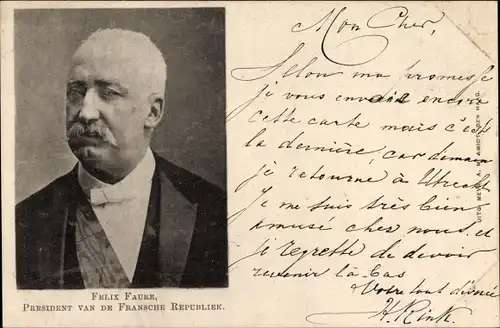 Mon Cher,
Selon ma promesse
je vous envoie encore
cette carte mais c'est
la dernière, car demain
je retourne à Utrecht
Je me suis très bien
amusé chez nous et
je regrette de devoir
revenir là-bas
Votre tout dévoué
H. Rink.
FELIX FAURE,
PRESIDENT VAN DE FRANSCHE REPUBLIEK.
UITG. DEN HAAG.